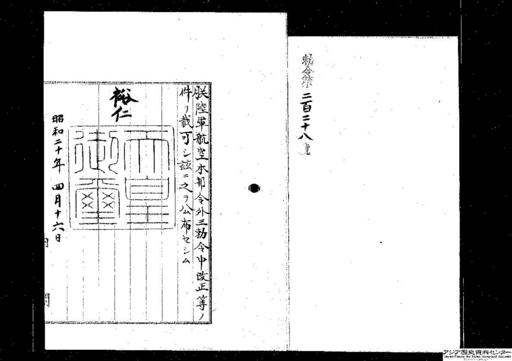 勅令第二百二十八号
朕陸軍航空本部令外三勅令中改正等ノ
件ヲ裁可シ玆ニ之ヲ公布セシム
裕仁
天皇
御璽
昭和二十年四月十六日
アジア歴史資料センター